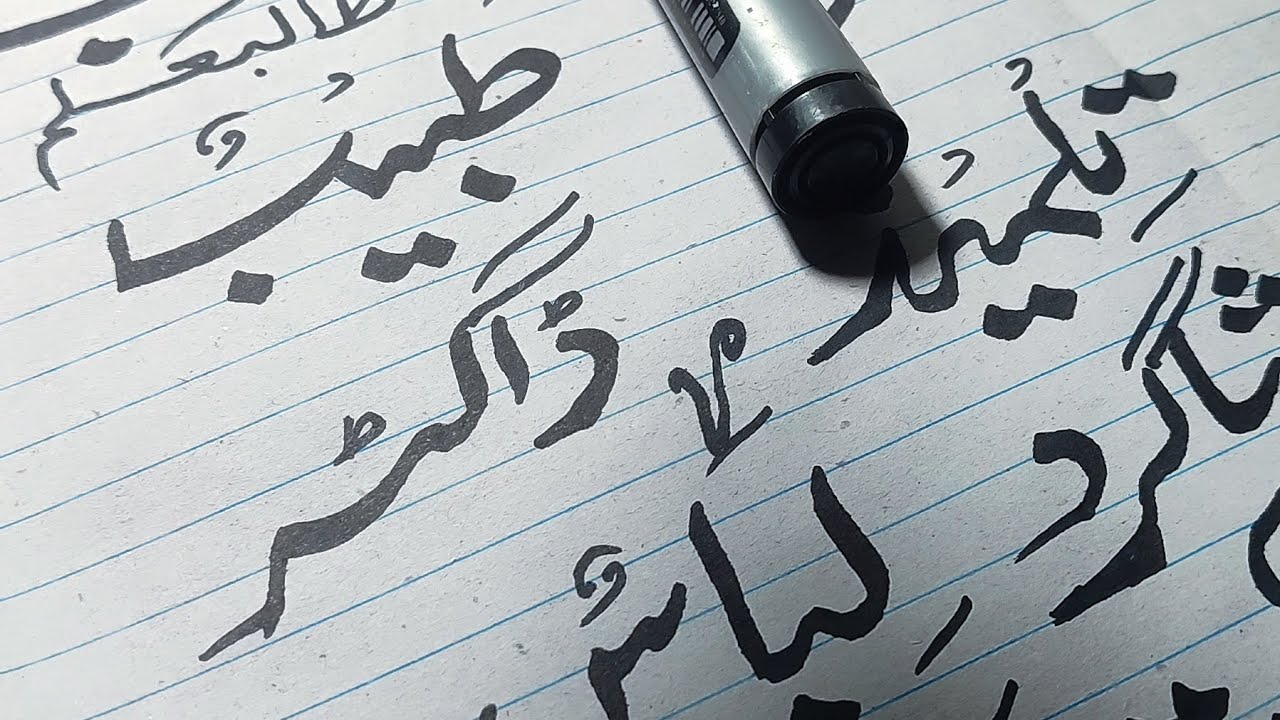 طالبعلم
تلمیذ طبیب
شاگرد ڈاکٹر
لباس